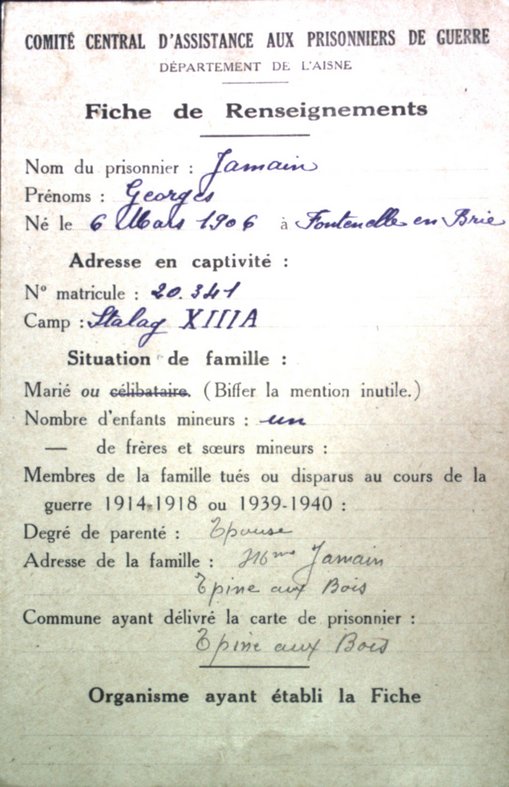 COMITÉ CENTRAL D'ASSISTANCE AUX PRISONNIERS DE GUERRE
DÉPARTEMENT DE L'AISNE
Fiche de Renseignements
Nom du prisonnier : Jamain
Prénoms : Georges
Né le 6 Mars 1906 à Fontenelle en Brie
Adresse en captivité :
N° matricule : 20.341
Camp : Stalag XIIIA
Situation de famille :
Marié ou célibataire. (Biffer la mention inutile.)
Nombre d'enfants mineurs : un
— de frères et sœurs mineurs :
Membres de la famille tués ou disparus au cours de la
guerre 1914-1918 ou 1939-1940 :
Degré de parenté : Epouse
Adresse de la famille : Mme Jamain
Epine aux Bois
Commune ayant délivré la carte de prisonnier :
Epine aux Bois
Organisme ayant établi la Fiche